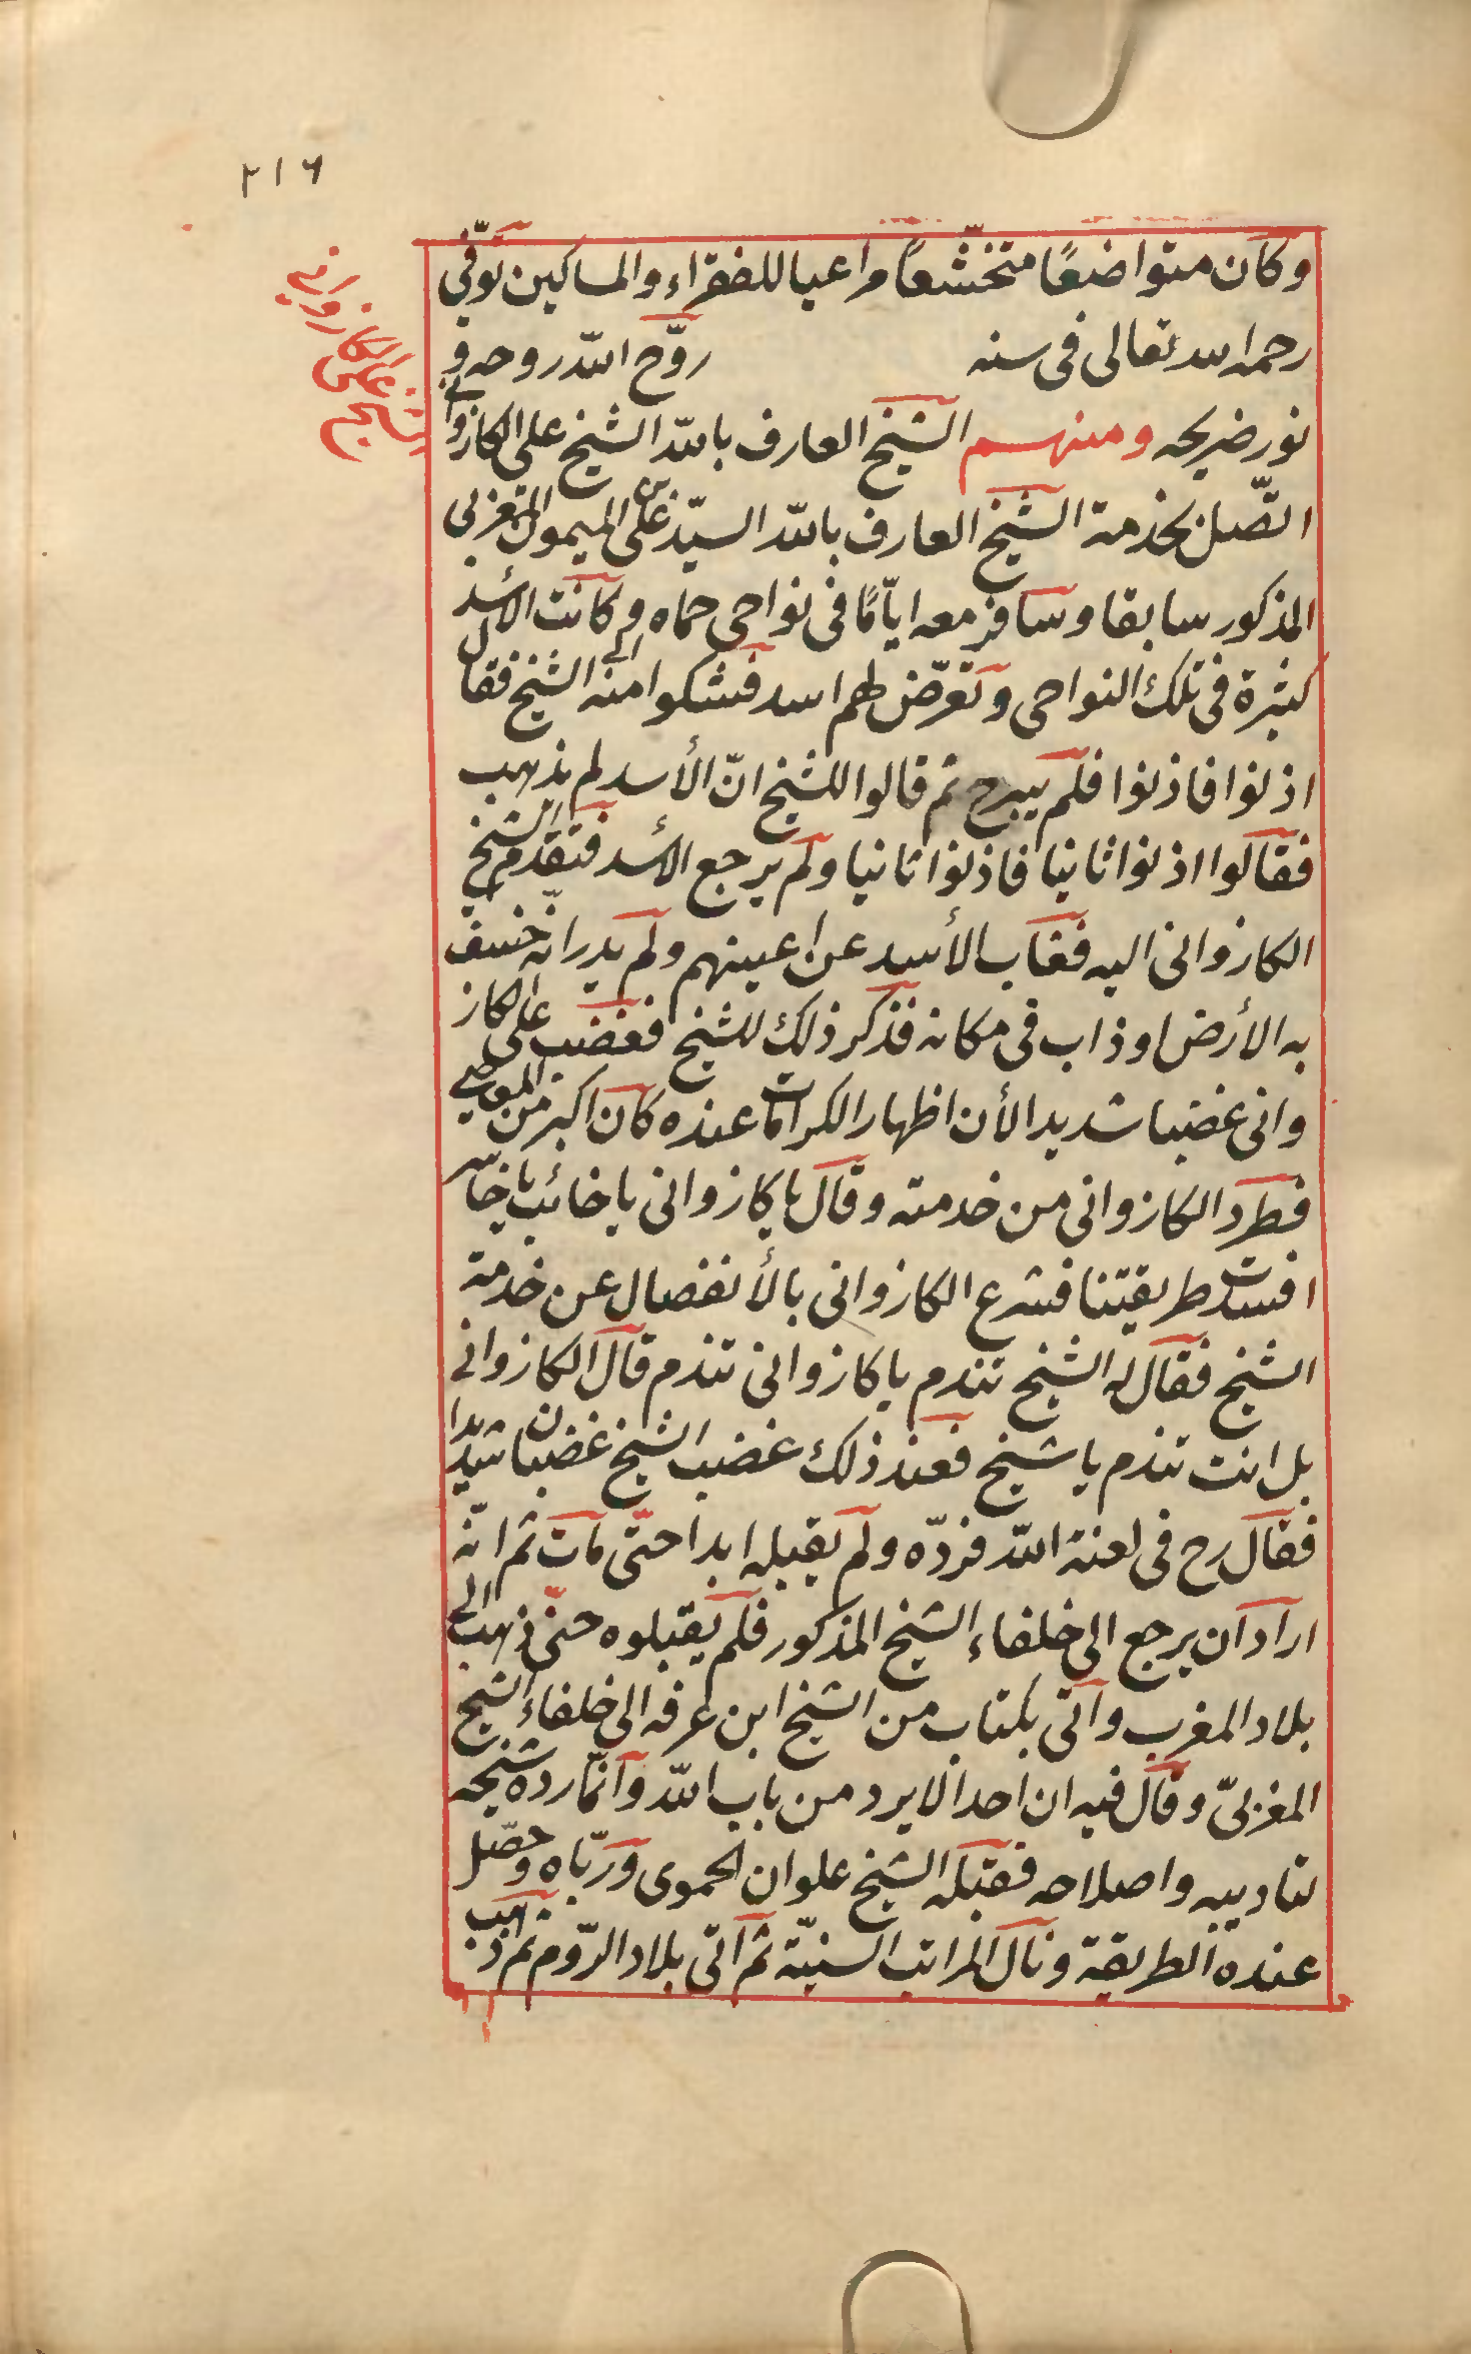 ٢١٦
الشيخ على الكازوانى
وكان متواضعًا متخشّعًا مراعيا للفقراء والمساكين توفّى
رحمه الله تعالى فى سنه روّح الله روحه و
نور ضريحه ومنهم الشيخ العارف بالله الشيخ على الكازوانى
اتّصل بخدمة الشيخ العارف بالله السيّد على بن الميمون المغربى
المذكور سابقا وسافر معه ايّامًا فى نواحى حماه وكانت الأسد
كثيرة فى تلك النواحى وتعرّض لهم اسد فشكوا منه الى الشيخ فقال
اذنوا فاذنوا فلم يبرح ثم قالوا للشيخ انّ الأسد لم يذهب
فقالوا اذنوا ثانيا فاذنوا ثانيا ولم يرجع الأسد فتقدّم الشيخ
الكازوانى اليه فغاب الأسد عن اعينهم ولم يدر انّه خسف
به الأرض او ذاب فى مكانه فذكر ذلك للشيخ فغضب على الكاز
وانى غضبا شديدا لأن اظهار الكرامات عنده كان اكبر من المعاصى
فطرد الكازوانى من خدمته وقال يا كازوانى يا خائب يا خاسر
افسدت طريقتنا فشرع الكازوانى بالأنفصال عن خدمة
الشيخ فقال له الشيخ تندم يا كازوانى تندم قال الكازوانى
بل انت تندم يا شيخ فعند ذلك غضب الشيخ غضبا شديدا
فقال رح فى لعنة الله فردّه ولم يقبله ابدا حتّى مات ثم انّه
اراد ان يرجع الى خلفاء الشيخ المذكور فلم يقبلوه حتّى ذهب الى
بلاد المغرب وأتى بكتاب من الشيخ ابن عرفه الى خلفاء الشيخ
المغربىّ وقال فيه ان احدا لا يرد من باب الله وانّما رده شيخه
لتاديبه واصلاحه فقبله الشيخ علوان الحموى وربّاه وحصّل
عنده الطريقة ونال المراتب السنيّة ثم أتى بلاد الرّوم ثم ذهب